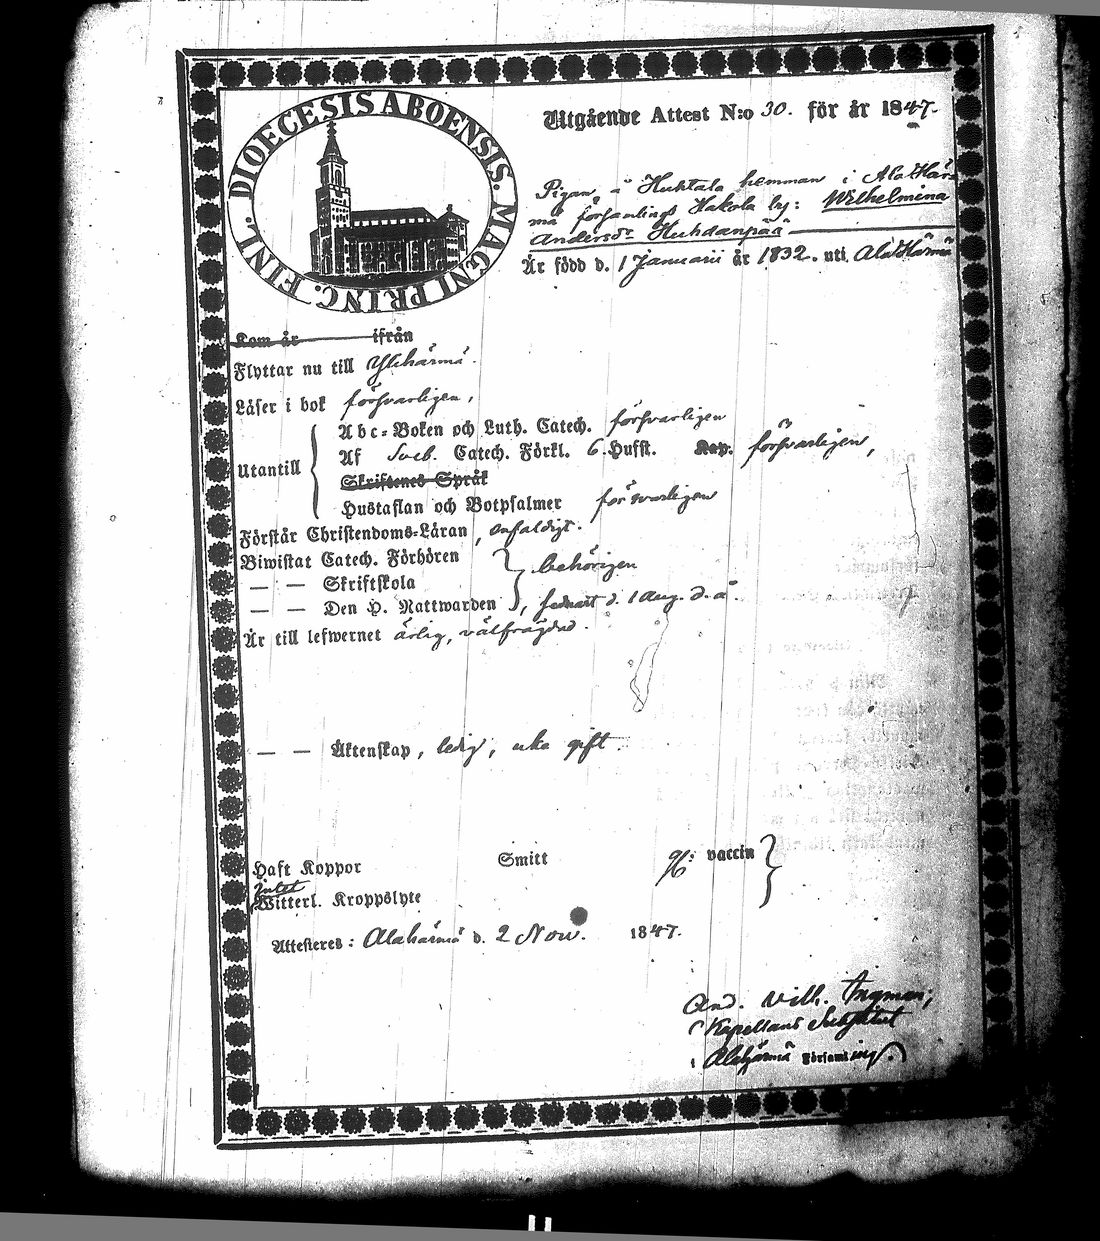 DIOECESIS ABOENSIS. MAGNI PRINC. FINL.
Utgående Attest N:o 30. för år 1847.
Pigan, å Huhtala hemman i AlaHär-
mä församlings Hakola by: Wilhelmina
Andersdr Huhdanpää
Är född d. 1 Januarii år 1832. uti AlaHärmä
Kom år ifrån
Flyttar nu till Ylihärmä.
Läser i bok försvarligen,
Utantill
Abc-Boken och Luth. Catech. försvarligen
Af Sveb. Catech. Förkl. 6. Hufst. Kap. försvarligen,
Skriftenes Språk
Hustaflan och Botpsalmer försvarligen
Förstår Christendoms-Läran, enfaldigt.
Biwistat Catech. Förhören
behörigen
— — Skriftskola
— — Den H. Nattwarden, senast d. 1 Aug. d. å.
Är till lefwernet ärlig, välfrägdad.
— — Äktenskap, ledig, icke gift
Haft Koppor Smitt vaccin
intet
Witterl. Kroppslyte
Attesteres: Alahärmä d. 2 Nov. 1847.
And. Wilh. Ingman;
(Kapellans Substitut
i Alahärmä Församling.)